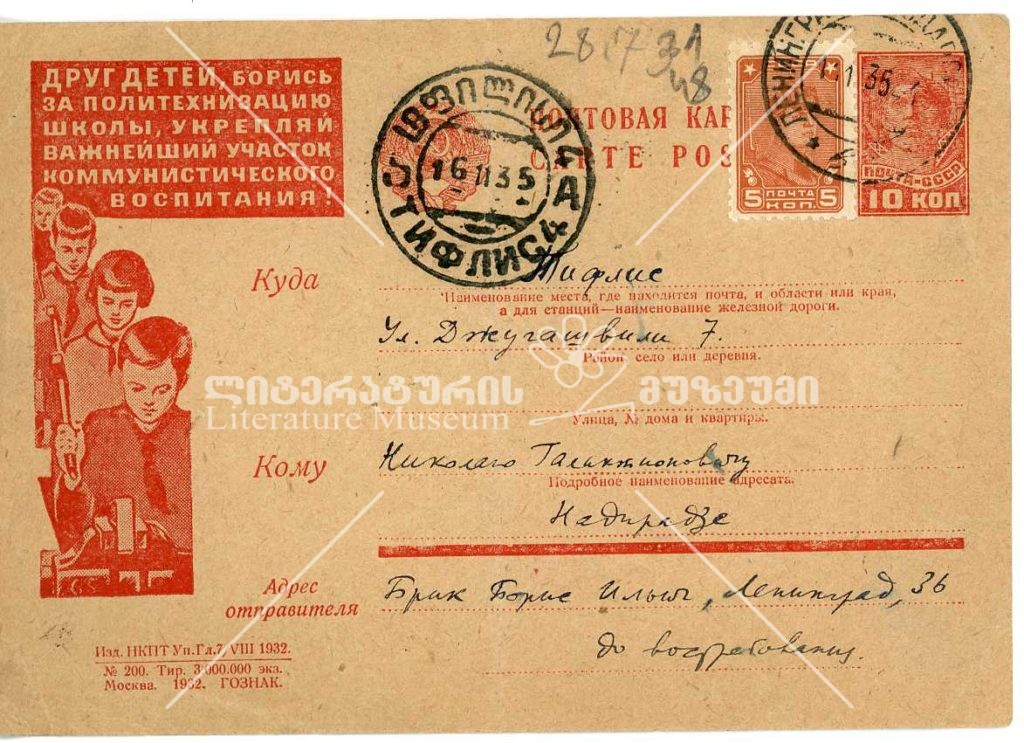 28.7 31
48
ДРУГ ДЕТЕЙ, БОРИСЬ
ЗА ПОЛИТЕХНИЗАЦИЮ
ШКОЛЫ, УКРЕПЛЯЙ
ВАЖНЕЙШИЙ УЧАСТОК
КОММУНИСТИЧЕСКОГО
ВОСПИТАНИЯ!
ТИФЛИС 4
16 11 35
ПОЧТОВАЯ КАР
CARTE POS
ПОЧТА
5 КОП. 5
ЛЕНИНГР
ПОЧТА-СССР
10 КОП.
Куда
Тифлис
Наименование места, где находится почта, и области или края,
а для станций—наименование железной дороги.
Ул. Джугашвили 7.
Район, село или деревня.
ლიტერატურის მუზეუმი
Literature Museum
Улица, № дома и квартиры.
Кому
Николаю Галактионовичу
Подробное наименование адресата.
Надирадзе
Адрес
отправителя
Брик Борис Ильич, Ленинград, 36
до востребования.
Изд. НКПТ Уп.Гл.7/VIII 1932.
№ 200. Тир. 3.000.000 экз.
Москва. 1932. ГОЗНАК.